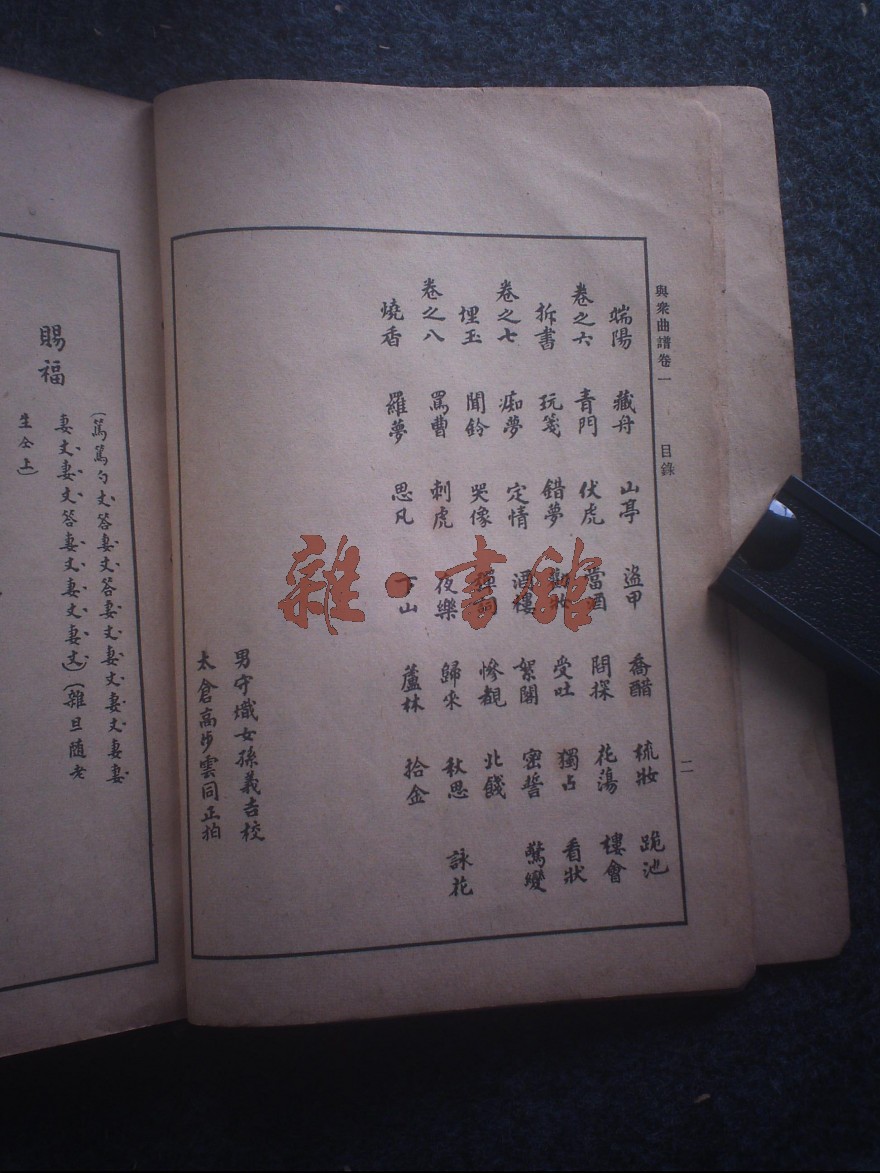 與衆曲譜卷一 目錄 二
端陽 藏舟 山亭 盗甲 喬醋 梳妝 跪池
卷之六 青門 伏虎 當酒 問探 花蕩 樓會
拆書 玩箋 錯夢 勸妝 受吐 獨占 看狀
卷之七 痴夢 定情 酒樓 絮閣 密誓 驚變
埋玉 聞鈴 哭像 彈詞 慘觀 北餞
卷之八 罵曹 刺虎 夜樂 歸來 秋思 詠花
燒香 羅夢 思凡 下山 蘆林 拾金
男守熾女孫義吉校
太倉高步雲同正拍
雜·書館
賜福
(篤篤勺丈答妻丈答妻丈妻丈妻丈妻妻
妻丈妻丈答妻丈妻丈妻丈)(雜旦随老
生仝上)